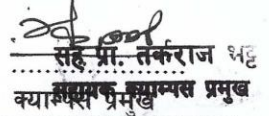 सह प्रा. तर्कराज भट्ट
....................
सहायक क्याम्पस प्रमुख
क्याम्पस प्रमुख